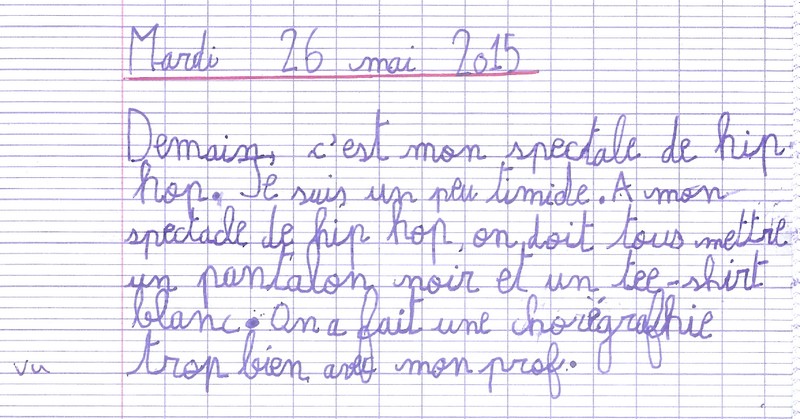 Mardi 26 mai 2015
Demain, c'est mon spectale de hip
hop. Je suis un peu timide. A mon
spectacle de hip hop, on doit tous mettre
un pantalon noir et un tee-shirt
blanc. On a fait une chorégraphie
trop bien avec mon prof.
vu